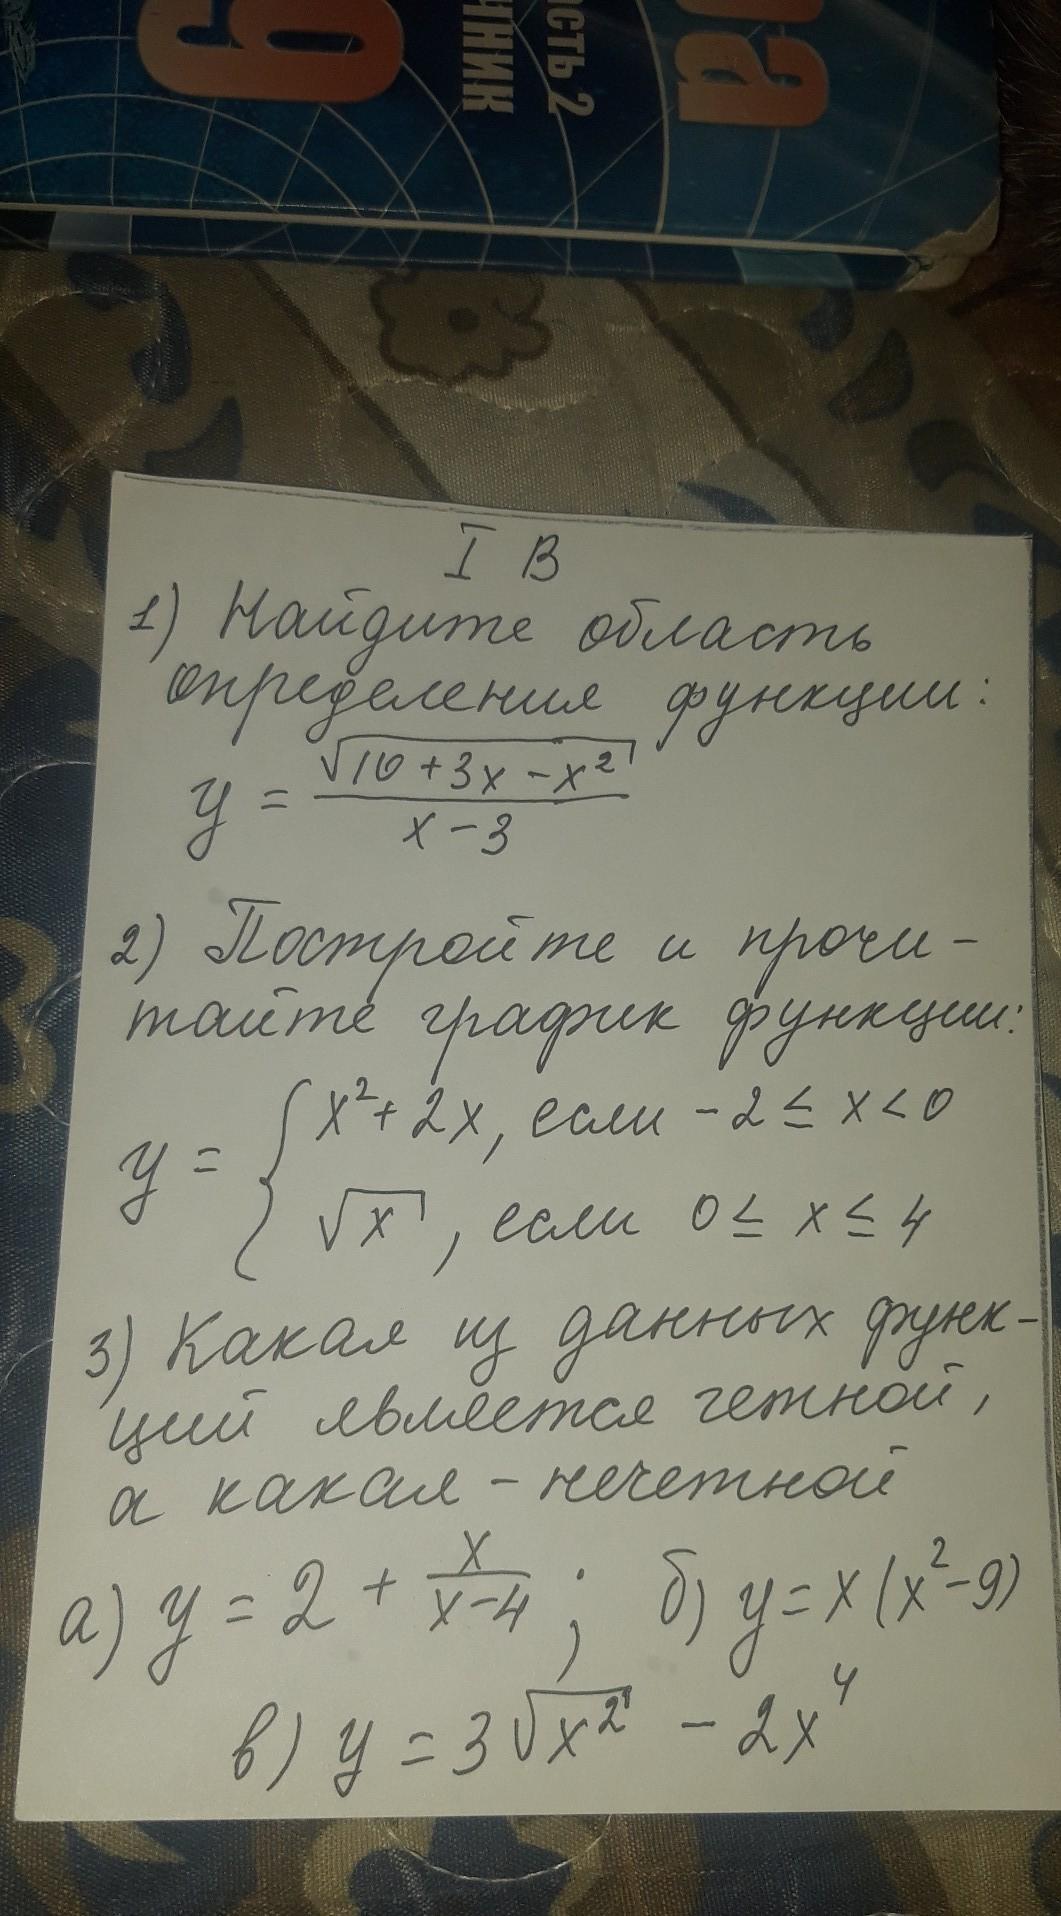 9
ЧНИК
АСТЬ 2
ра
I В
1) Найдите область
определения функции:
y = √(10+3x-x²) / (x-3)
2) Постройте и прочи-
тайте график функции:
y = { x²+2x, если -2 ≤ x < 0
√x, если 0 ≤ x ≤ 4
3) Какая из данных функ-
ций является четной,
а какая - нечетной
а) y = 2 + x/(x-4); б) y = x(x²-9)
в) y = 3√x² - 2x⁴